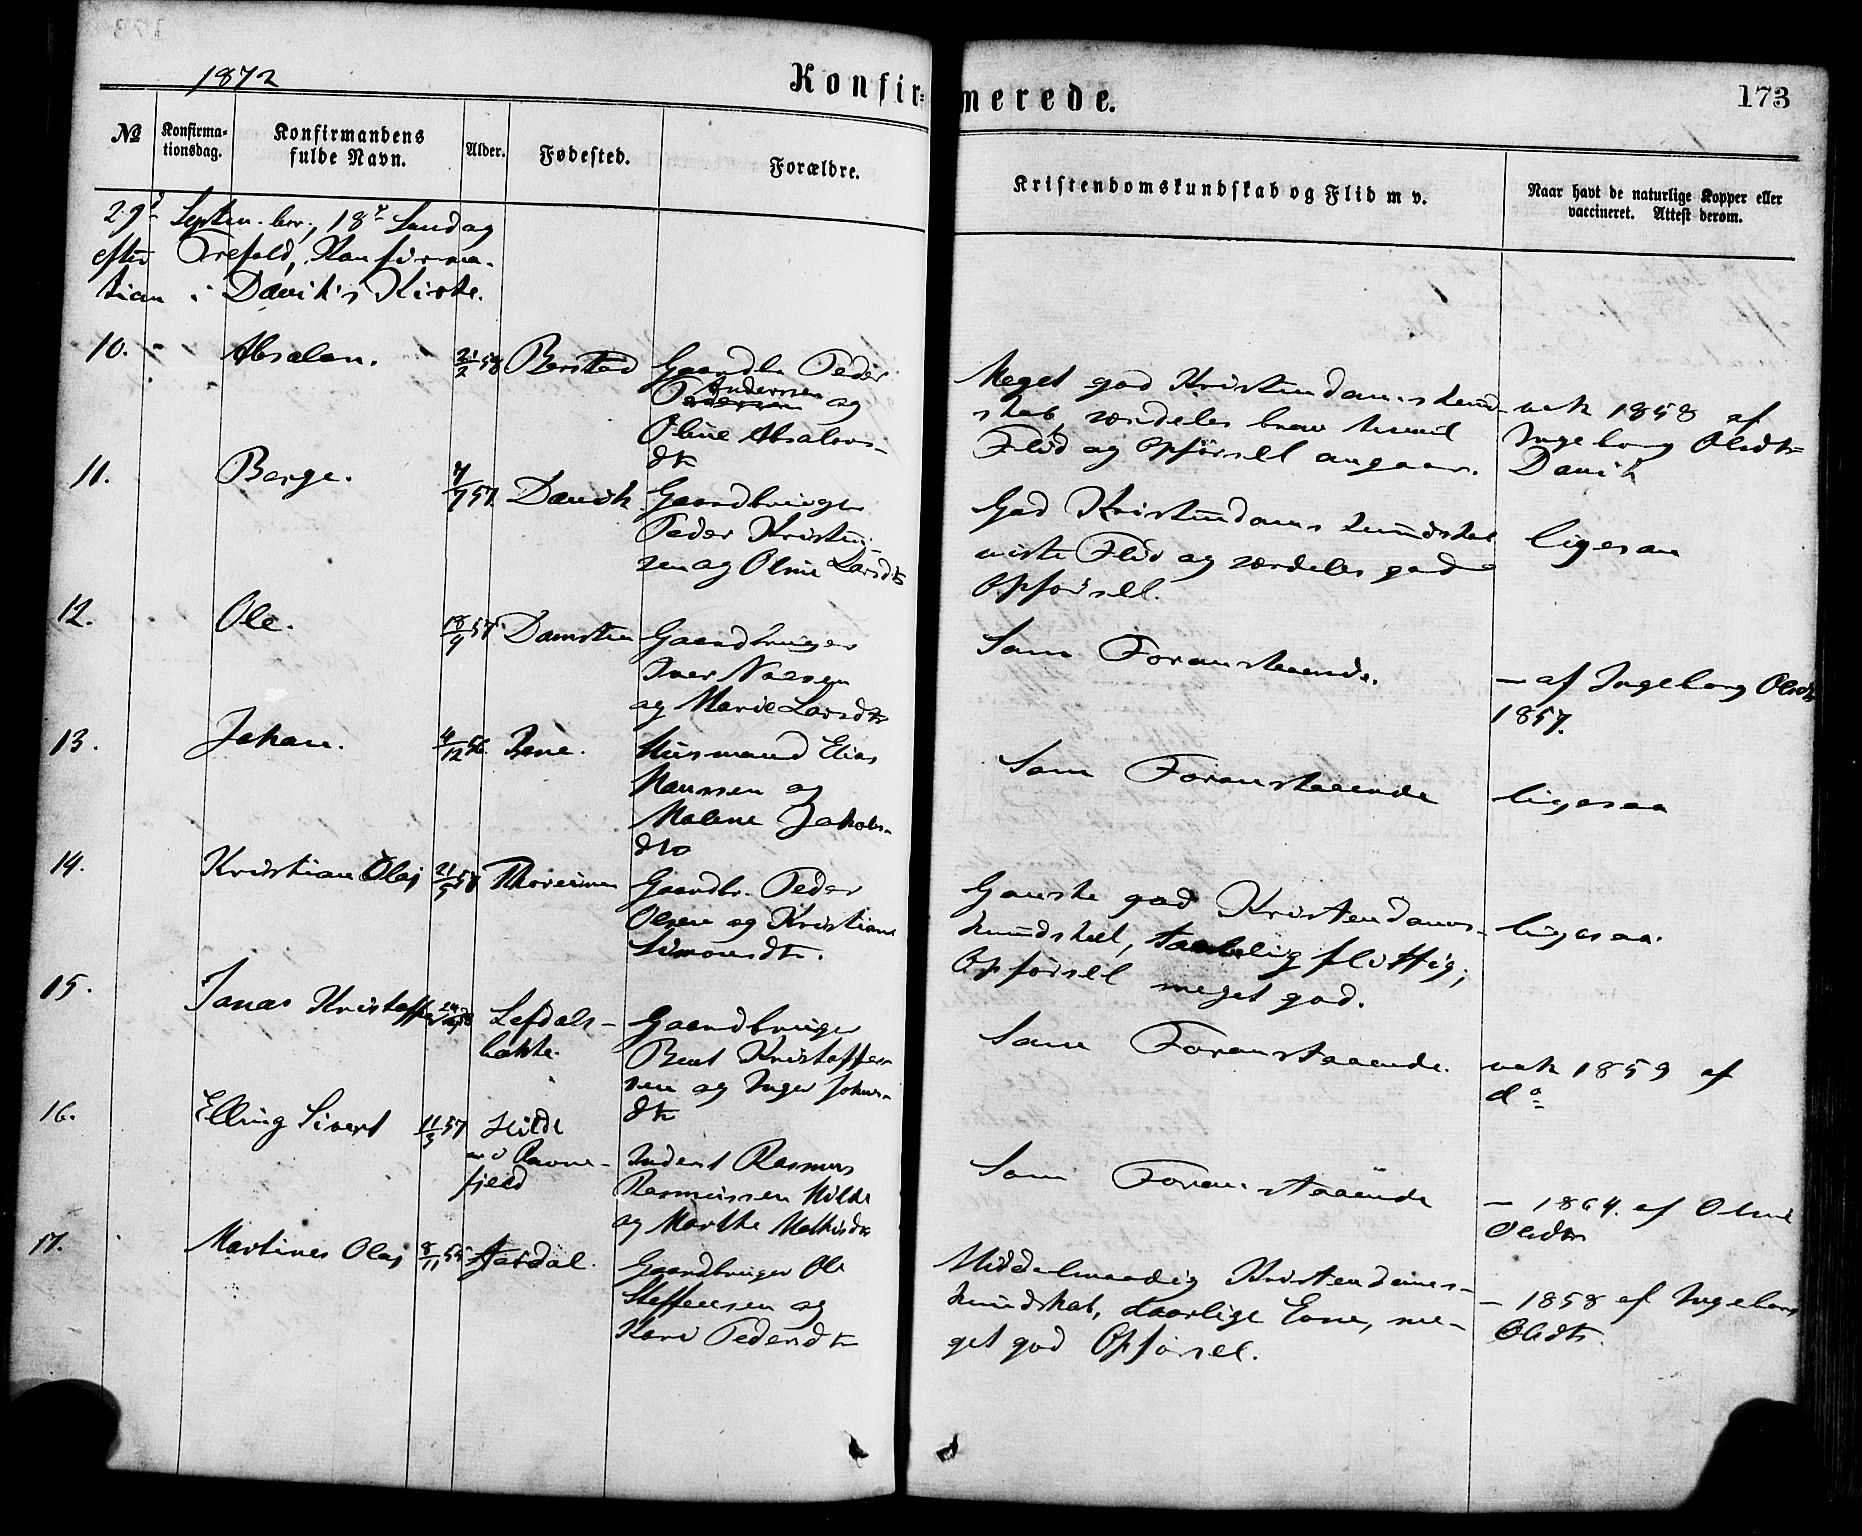 1872
Konfir=
merede.
173
No
Konfirma-
tionsdag.
Konfirmandens
fulde Navn.
Alder.
Fødested.
Forældre.
Kristendomskundskab og Flid m v.
Naar havt de naturlige Kopper eller
vaccineret. Attest derom.
29de Septem.ber, 18de Søndag
efter Trefold, Konfirma-
tion i Daviks Kirke.
10. Absalon. 21/2 58 Berstad Gaardbr Peder
Andersen
Pedersen og
Oline Absalons-
dtr
Meget god Kristendomskund-
skab, særdeles brav hvad
Flid og Opførsel angaar.
vak 1858 af
Ingeborg Olsdtr
Davik
11. Berge. 7/7 57. Davik Gaardbruger
Peder Kristen-
sen og Oline Larsdtr
God Kristendoms kundskab
viste Flid og særdeles god
Opførsel.
ligesaa
12. Ole. 18/9 57 Domsten Gaardbruger
Iver Nilsen
og Marie Larsdtr
Som Foranstaaende.
— af Ingeborg Olsdtr
1857.
13. Johan. 4/12 56. Husmand Elias
Hanssen og
Malene Jakobs-
dtr
Som Foranstaaende
ligesaa
14. Kristian Olai 21/5 58 Gaardbr. Peder
Olsen og Kristiane
Simonsdtr.
Ganske god Kristendoms-
kundskab, taalelig flittig;
Opførsel meget god.
ligesaa.
15. Jonas Kristoffer Lefdals-
bakke. Gaardbruger
Bent Kristoffer-
sen og Inger Johns-
dtr
Som Foranstaaende.
vak 1859 af
do
16. Elling Sivert 11/3 57 Hilde
nu i Ravne-
fjeld Inderst Rasmus
Rasmussen Hilde
og Marthe Mathisdtr
Som Foranstaaende
— 1864. af Oline
Olsdtr
17. Martines Olai 8/11 55 Aardal. Gaardbruger Ole
Steffensen og
Kari Pedersdtr
Middelmaadig Kristendoms-
kundskab, daarlige Evne, me-
get god Opførsel.
— 1858 af Ingeborg
Olsdtr.